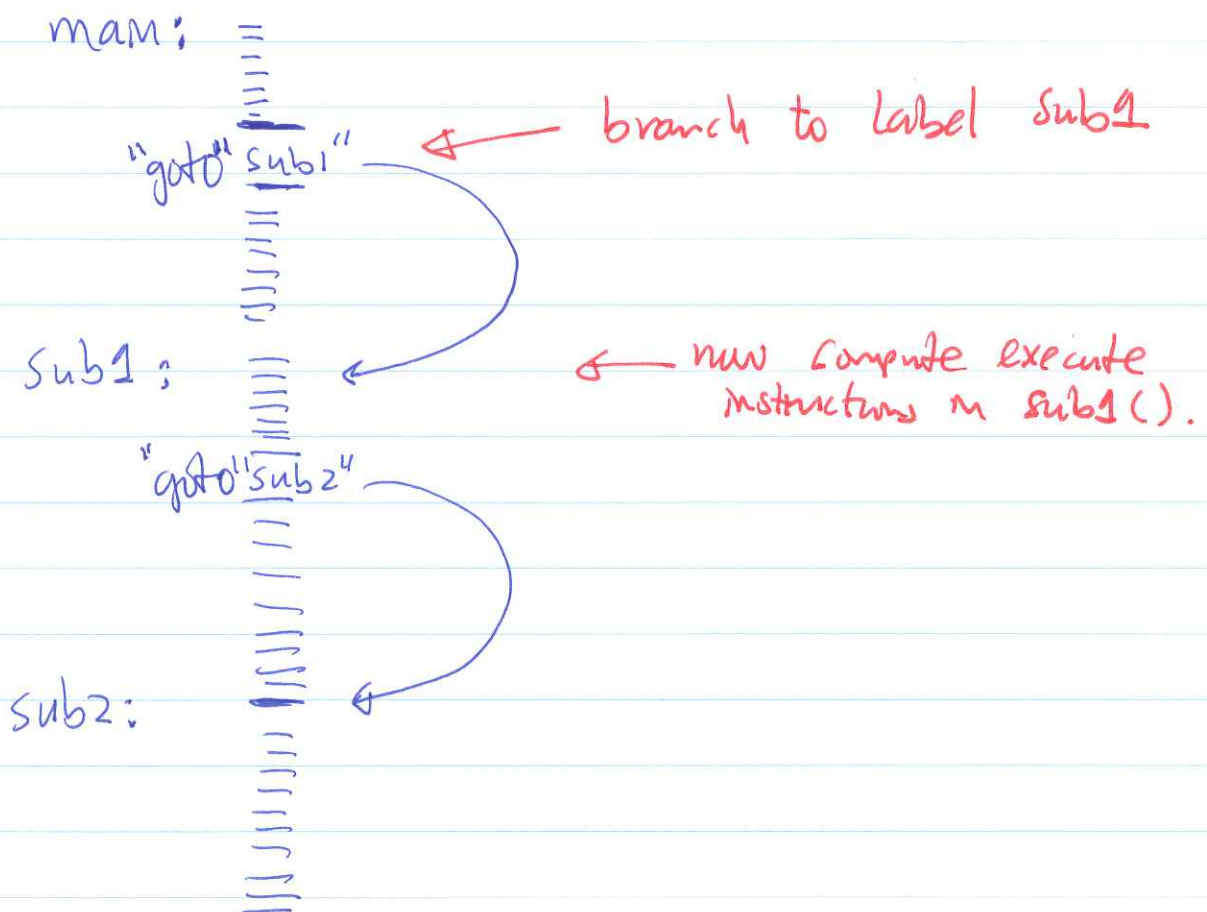 main:
"goto" sub1"
branch to label sub1
sub1:
now compute execute
instructions in sub1().
"goto" sub2"
sub2: